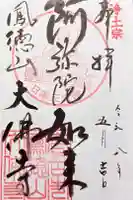 浄土宗
奉拝
令和八年
五月吉日
阿弥陀如来
鳳徳山
大佛寺